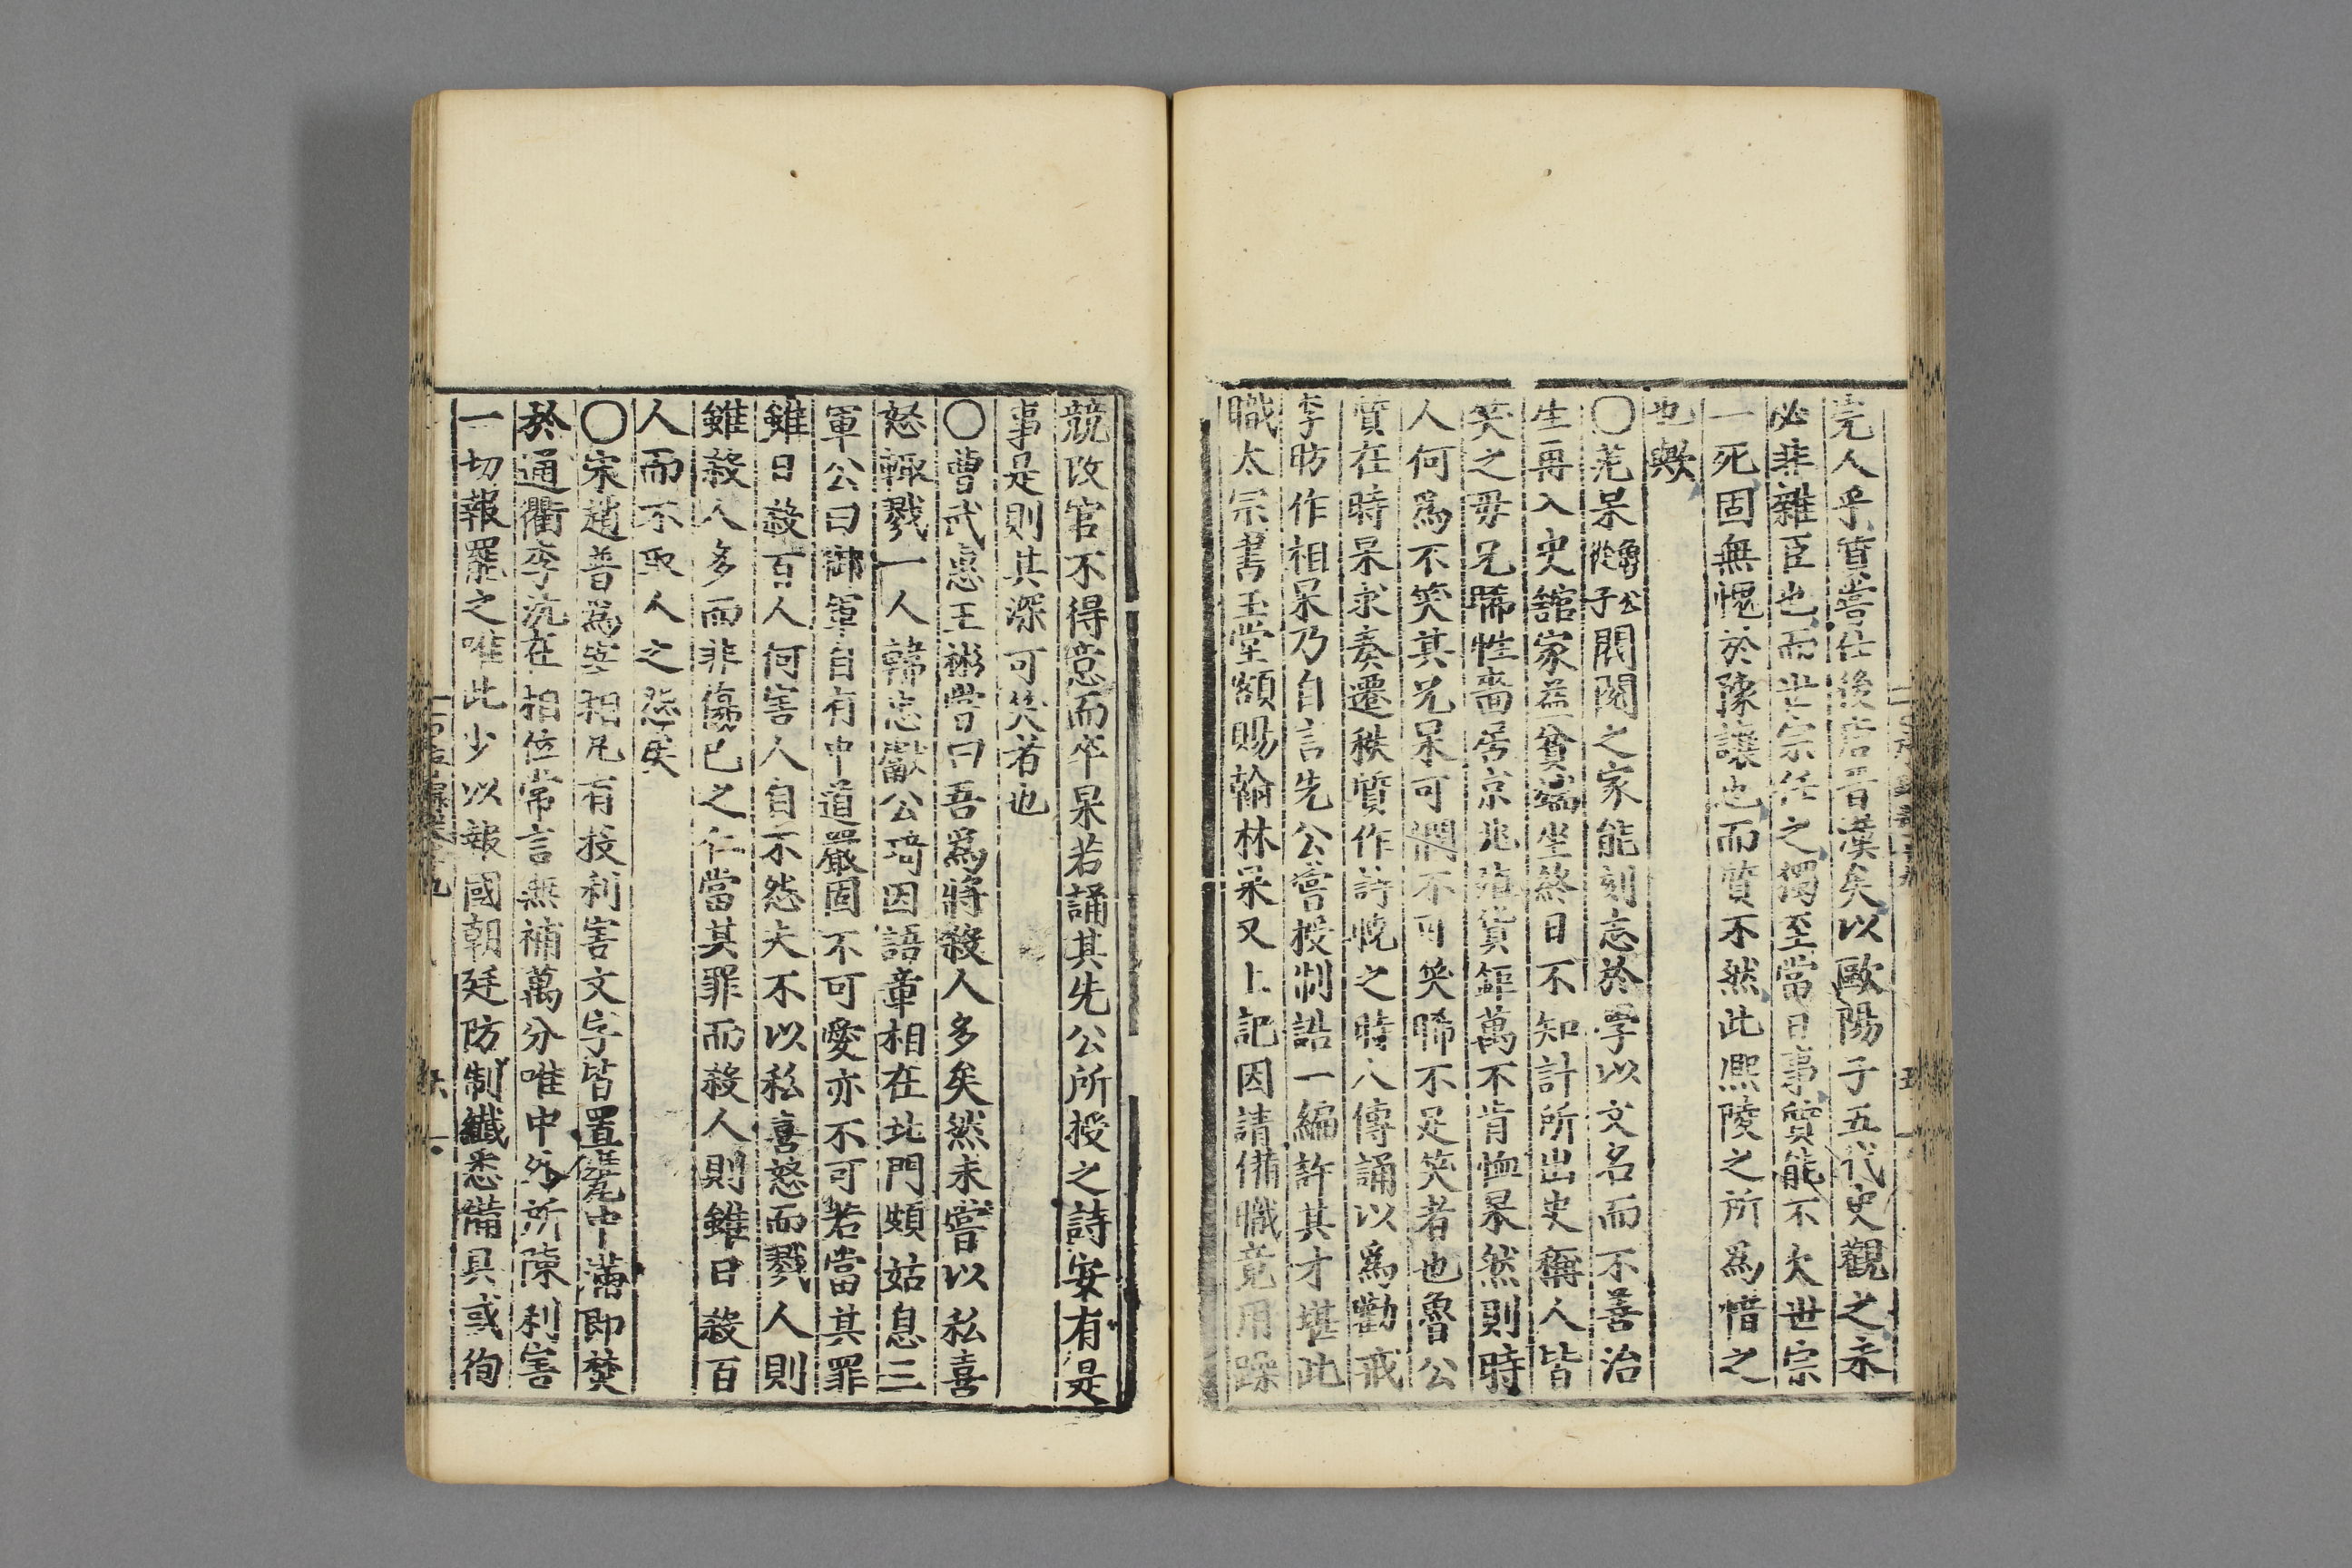 完人乎質嘗仕後唐晉漢矣以歐陽子五代史觀之未
必非雜臣也而世宗任之獨至當日事質能不欠世宗
一死固無愧於豫讓也而質不然此熈陵之所爲惜之
也歟
〇范杲魯公從子閥閱之家能刻志於學以文名而不善治
生再入史舘家益貧端坐終日不知計所出史稱人皆
笑之毋兄晞性嗇居京兆殖貨鉅萬不肯恤杲然則時
人何爲不笑其兄杲可憫不可笑晞不足笑者也魯公
質在時杲求奏遷秩質作詩曉之時人傳誦以爲勸戒
李昉作相杲乃自言先公嘗授制誥一編許其才堪此
職太宗書玉堂額賜翰林杲又上記因請備職竟用躁
競改官不得意而卒杲若誦其先公所授之詩安有是
事是則其深可笑者也
〇曹武惠王彬嘗曰吾爲將殺人多矣然未嘗以私喜
怒輒戮一人韓忠獻公琦因語章相在北門頗姑息三
軍公曰御軍自有中道嚴固不可愛亦不可若當其罪
雖日殺百人何害人自不怨夫不以私喜怒而戮人則
雖殺人多而非傷已之仁當其罪而殺人則雖日殺百
人而不取人之怨矣
〇宋趙普爲宰相凡有投利害文字皆置甕中滿即焚
於通衢李沆在相位常言無補萬分唯中外所陳利害
一切報罷之唯此少以報國朝廷防制纖悉備具或徇